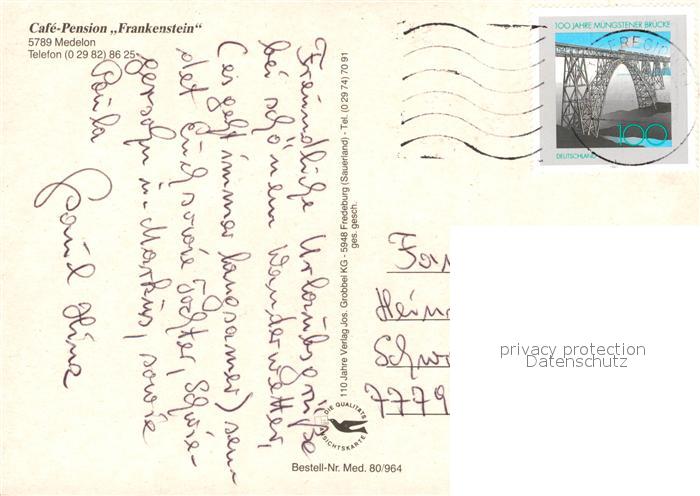 Café-Pension „Frankenstein“
5789 Medelon
Telefon (0 29 82) 86 25
Freundliche Urlaubsgrüße
bei schönem Wanderwetter,
(es geht immer langsamer) sen-
det Euch sowie Tochter, Schwie-
gersohn u. Markus, sowie
Paula
110 Jahre Verlag Jos. Grobbel KG - 5948 Fredeburg (Sauerland) - Tel. (0 29 74) 70 91
ges. gesch.
DIE QUALITÄTS
ANSICHTSKARTE
Bestell-Nr. Med. 80/964
100 JAHRE MÜNGSTENER BRÜCKE
100
DEUTSCHLAND
Fam
Hein
Schw
7779
privacy protection
Datenschutz